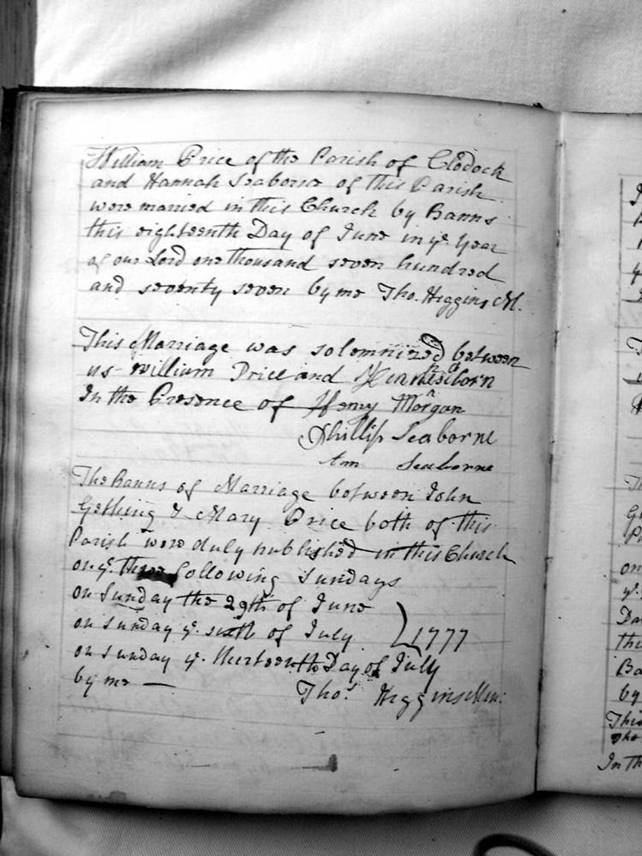 William Price of the Parish of Clodock
and Hannah Seaborne of this Parish
were married in this Church by Banns
this eighteenth Day of June in ye. Year
of our Lord one thousand seven hundred
and seventy seven by me Tho. Higgins M.
This Marriage was solemnized between
us William Price and
In the Presence of Henry Morgan
Phillip Seaborne
Ann Seaborne
The Banns of Marriage between John
Gething & Mary Price both of this
Parish were duly published in this Church
on ye. three following Sundays
on Sunday the 29th of June
on Sunday ye. sixth of July 1777
on Sunday ye. thirteenth Day of July
by me — Tho. Higgins Min: